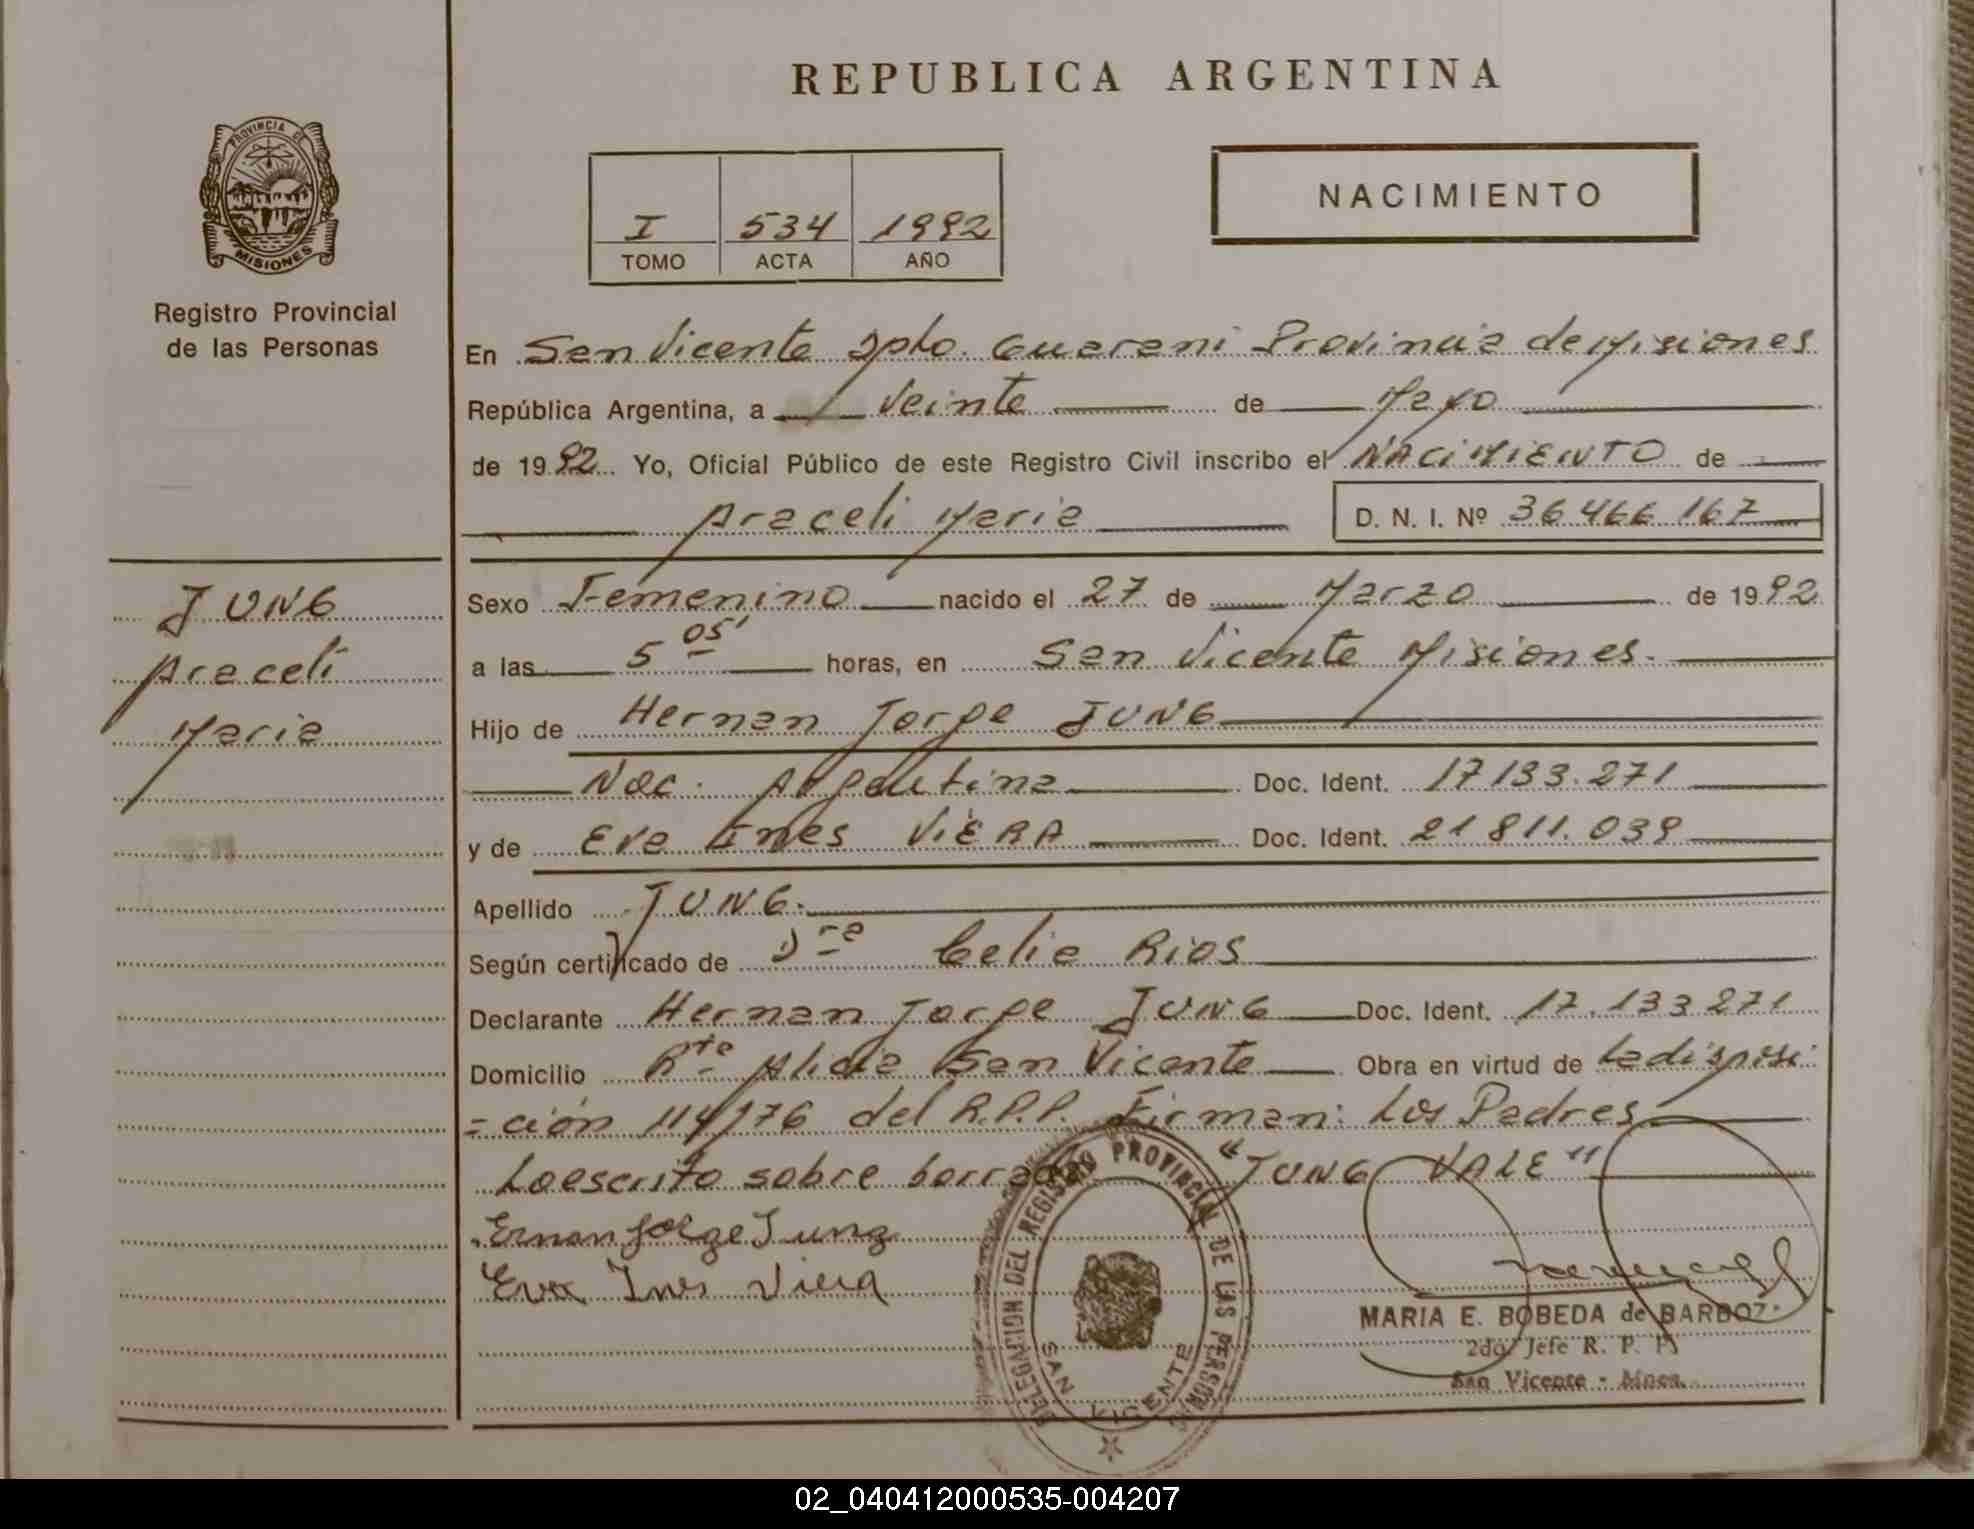 REPUBLICA ARGENTINA
PROVINCIA DE
MISIONES
Registro Provincial
de las Personas
I 534 1992
TOMO ACTA AÑO
NACIMIENTO
En San Vicente Dpto. Guarani Provincia de Misiones
República Argentina, a veinte de Mayo
de 1992 Yo, Oficial Público de este Registro Civil inscribo el NACIMIENTO de
Araceli Maria D. N. I. Nº 36466167
JUNG
Araceli
Maria
Sexo Femenino nacido el 27 de Marzo de 1992
a las 5 05' horas, en San Vicente Misiones.
Hijo de Hernan Jorge JUNG
Nac. Argentina Doc. Ident. 17133.271
y de Eva Ines VIERA Doc. Ident. 21811.039
Apellido JUNG.
Según certificado de Dra Celia Rios
Declarante Hernan Jorge JUNG Doc. Ident. 17.133271
Domicilio Rta Alicia San Vicente Obra en virtud de La disposi
=ción 114/76 del R.P.P. Firman: Los Padres
Lo escrito sobre borrado "JUNG VALE"
Ernan Jorge Jung
Eva Ines Viera
DELEGACION DEL REGISTRO PROVINCIAL DE LAS PERSONAS
SAN VICENTE
MARIA E. BOBEDA de BARBOZ
2do Jefe R. P. P.
San Vicente - Mnes.
02_040412000535-004207